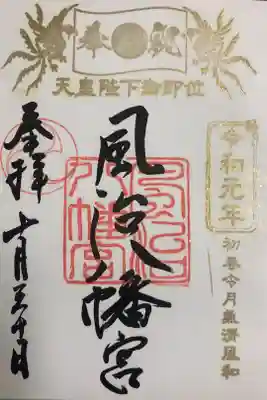 奉祝
天皇陛下御即位
令和元年
初春令月氣淑風和
風治八幡宮
奉拝
十月三十日